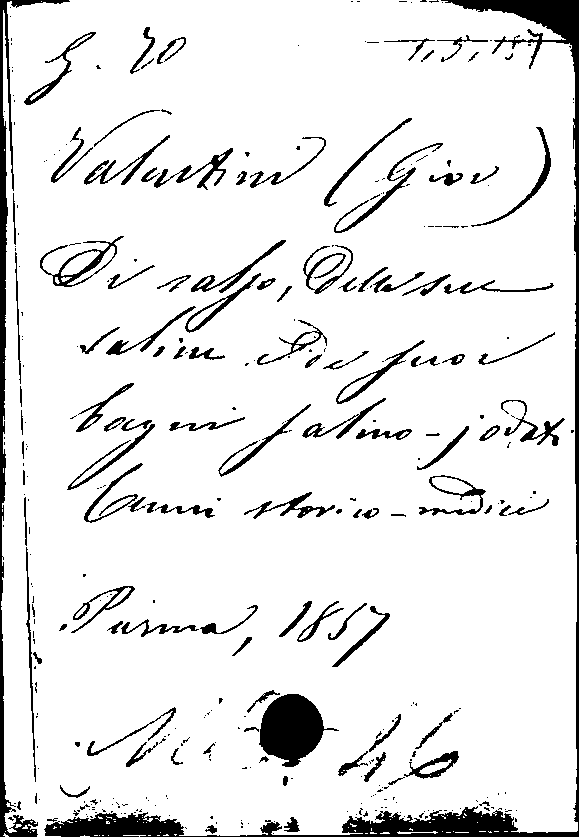 G. 70
1, 5, 187
Valentini (Giov)
Di Salso, delle sue
saline e de suoi
bagni salino-jodati
Cenni storico-medici
Parma, 1857
46